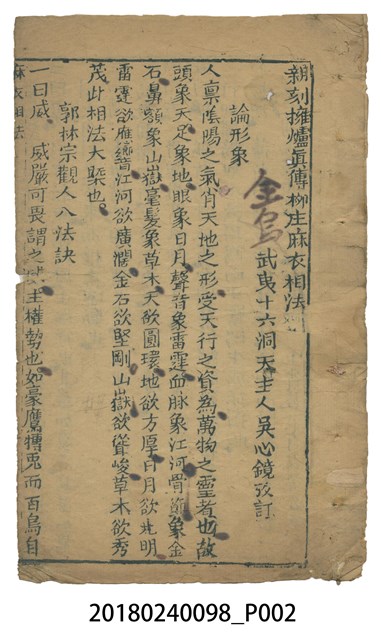 新刻擁爐眞傳柳庄麻衣相法
武夷十六洞天主人吳心鏡攷訂
論形象
人禀陰陽之氣肖天地之形受天行之資為萬物之靈者也故
頭象天足象地眼象日月聲音象雷霆血脉象江河骨節象金
石鼻額象山嶽毫髪象草木天欲圓環地欲方厚日月欲光明
雷霆欲响江河欲廣濶金石欲堅剛山嶽欲聳峻草木欲秀
茂此相法大槩也
郭林宗觀人八法訣
一曰威 威嚴可畏謂之威主權勢也如豪鷹搏兎而百鳥自
麻衣相法
20180240098_P002